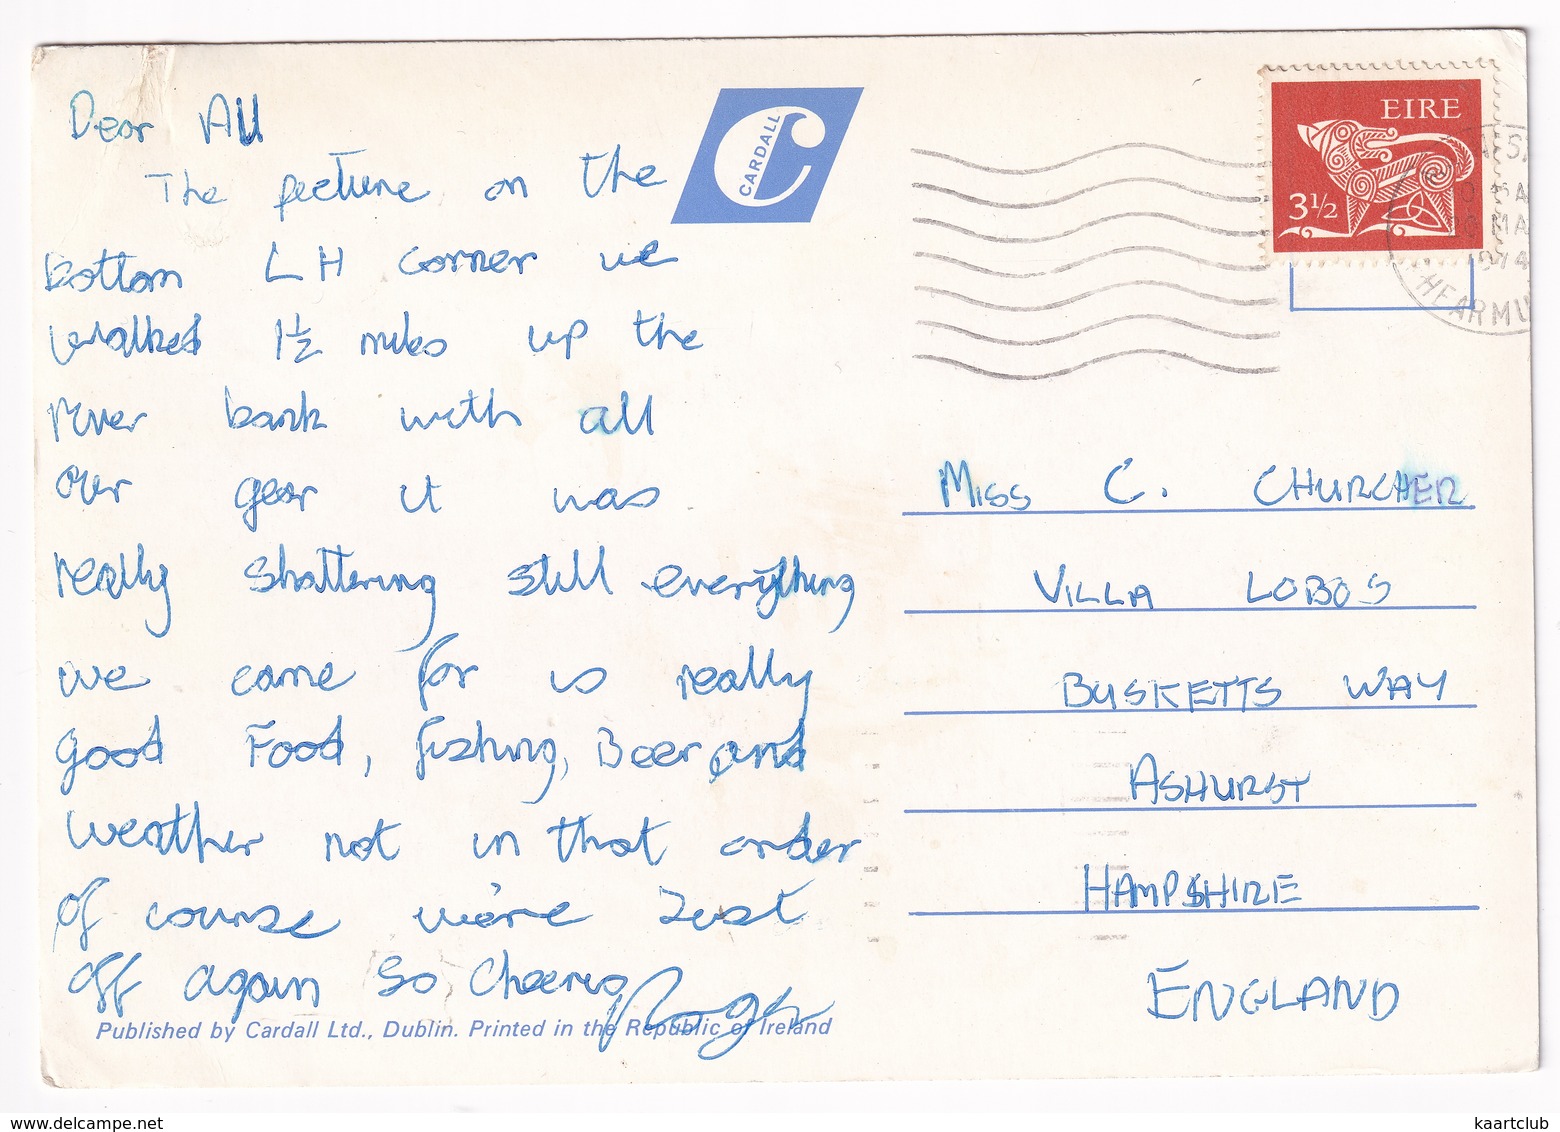 Dear All
The picture on the
bottom LH corner we
walked 1½ miles up the
river bank with all
our gear it was
really shattering still everything
we came for is really
good Food, fishing, Beer and
weather not in that order
of course we're Just
off again so Cheerio
Roger
Published by Cardall Ltd., Dublin. Printed in the Republic of Ireland
CARDALL
EIRE
3½
MISS C. CHURCHER
VILLA LOBOS
BUSKETTS WAY
ASHURST
HAMPSHIRE
ENGLAND
www.delcampe.net
kaartclub